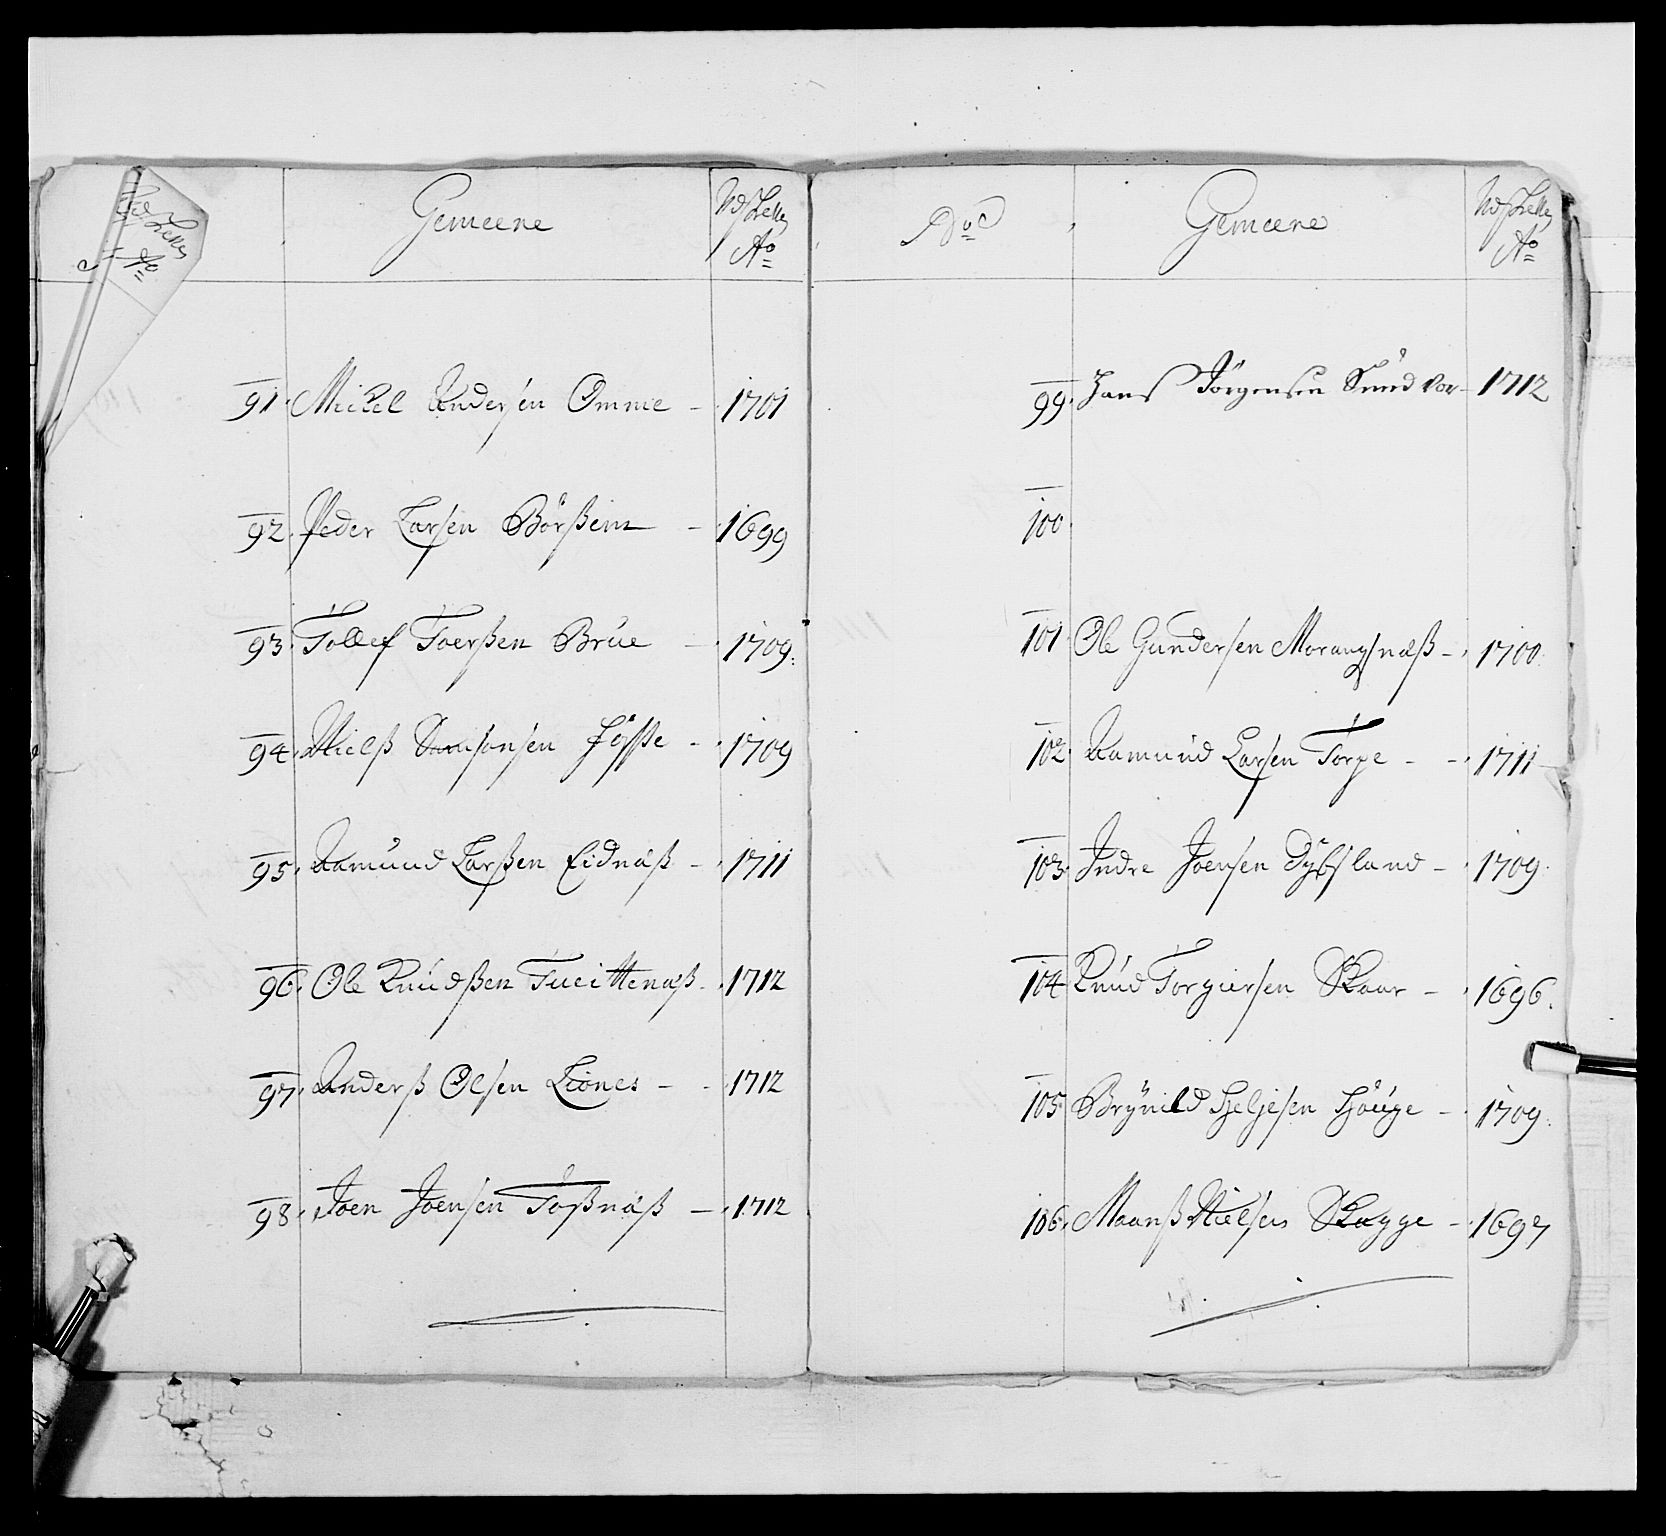 Gemeene
Udsette
Ao
91. Mickel Andersen Omme - 1701
92. Peder Larsen Börßeim - 1699
93. Tollef Toerßen Brüe - 1709
94. Nielß Samsonsen Föße - 1709
95. Aamund Larßen Eidnäß - 1711
96. Ole Knüdßen Tueittenäß - 1712
97. Anderß Olsen Liones - 1712
98. Joen Joensen Toßnäß - 1712
Gemeene
Udsette
Ao
99. Hans Jörgensen Sundvor - 1712
100.
101. Ole Gundersen Morangsnæß - 1700
102. Aamund Larsen Torge - 1711
103. Indre Joensen Dybsland - 1709
104. Knud Torgiersen Skaar - 1696
105. Brynild Heljesen Houge - 1709
106. Maanß Nielsen Skogge - 1697